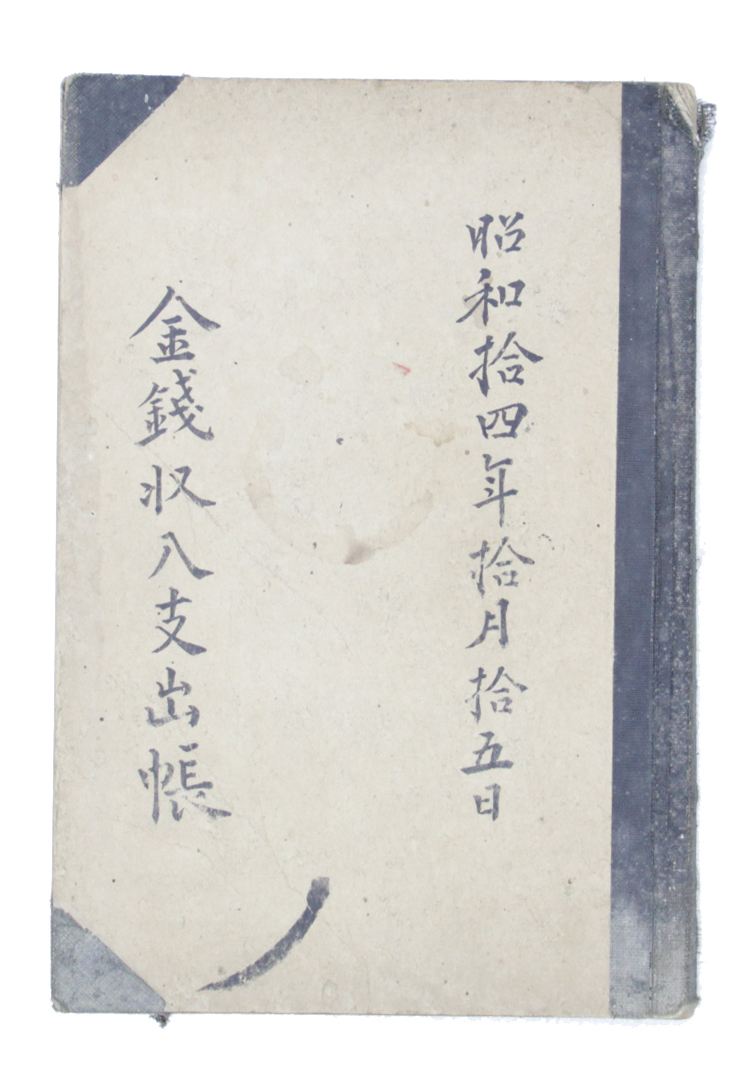 昭和拾四年拾月拾五日
金錢収入支出帳